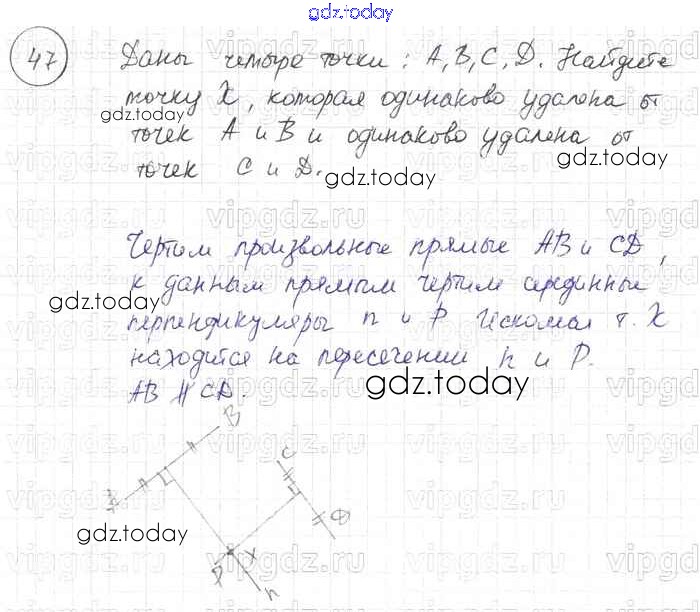 gdz.today
47 Даны четыре точки: A, B, C, D. Найдите
точку X, которая одинаково удалена от
gdz.today
точек A и B и одинаково удалена от
gdz.today
точек C и D.
gdz.today
vipgdz.ru
Чертим произвольные прямые AB и CD,
к данным прямым чертим серединные
gdz.today
перпендикуляры n и P. Искомая т. X
находится на пересечении n и P.
gdz.today
AB ∦ CD.
B
C
A
D
gdz.today
P
X
n